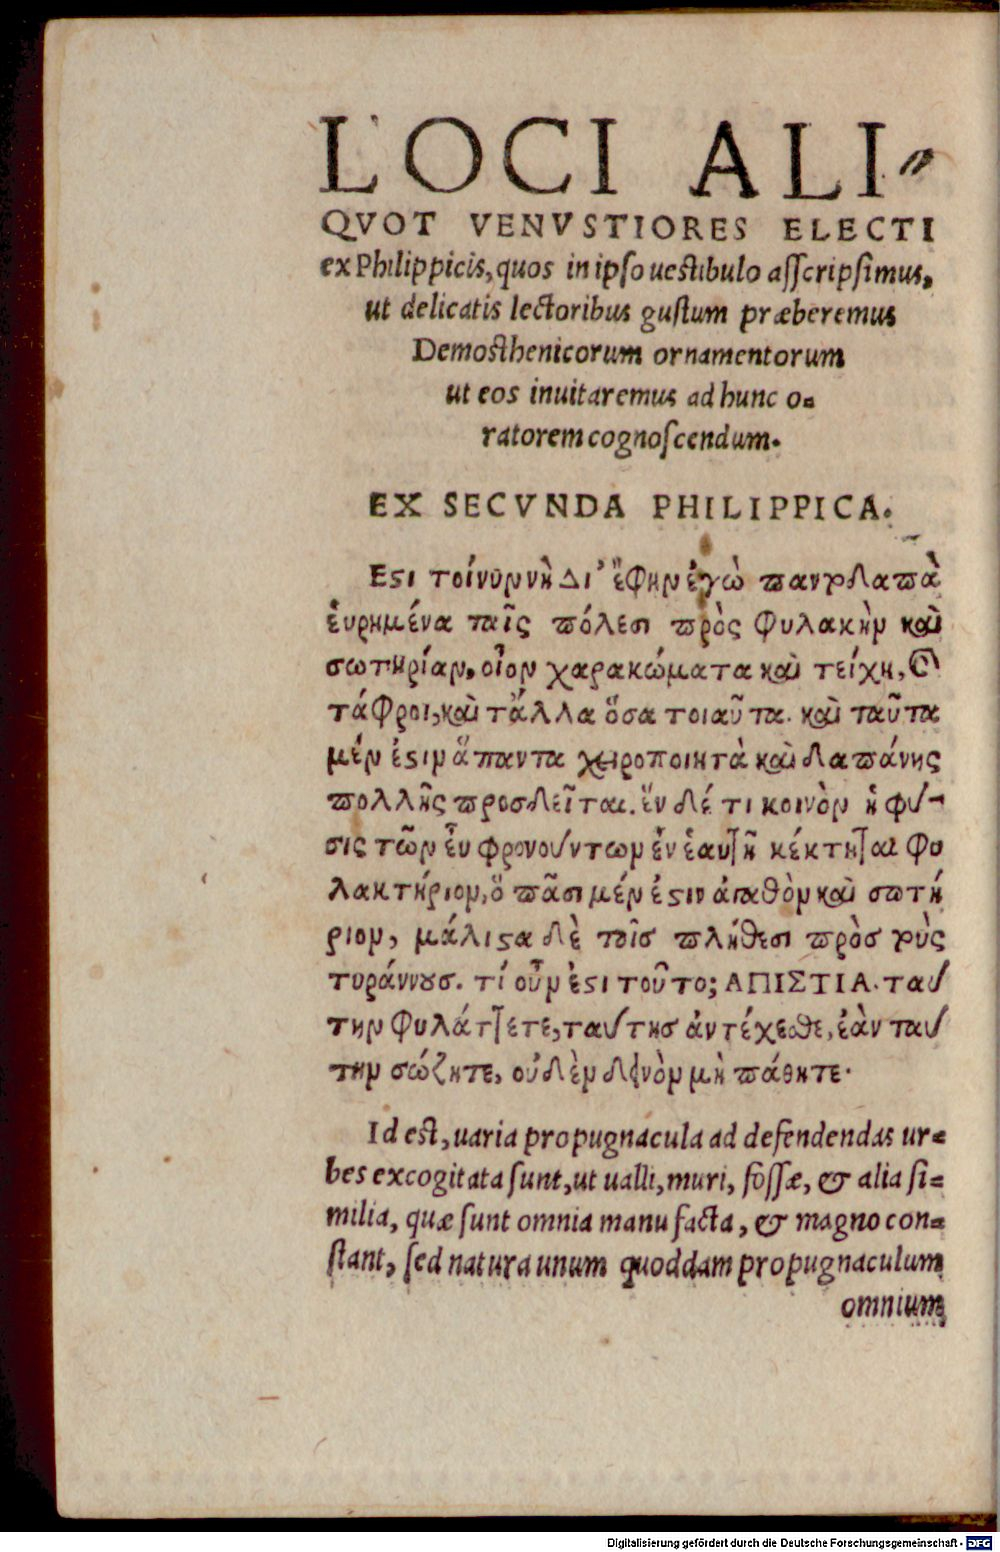 LOCI ALI-
QVOT VENVSTIORES ELECTI
ex Philippicis, quos in ipso uestibulo asscripsimus,
ut delicatis lectoribus gustum præberemus
Demosthenicorum ornamentorum
ut eos inuitaremus ad hunc o-
ratorem cognoscendum.
EX SECVNDA PHILIPPICA.
Εϛι τοίνυν νὴ Δι’ ἔφην ἐγὼ παντοδαπὰ
ἑυρημένα ταῖς πόλεσι πρὸς φυλακὴν καὶ
σωτηρίαν, οἷον χαρακώματα καὶ τείχη, καὶ
τάφροι, καὶ τἄλλα ὅσα τοιαῦτα. καὶ ταῦτα
μέν ἐϛιν ἅπαντα χειροποιητὰ καὶ δαπάνης
πολλῆς προσδεῖται. ἓν δέ τι κοινὸν ἡ φύ-
σις τῶν ἐυ φρονούντων ἐν ἑαυτῆ κέκτηται φυ
λακτήριον, ὃ πᾶσι μέν ἐϛιν ἀγαθὸν καὶ σωτή
ριον, μάλιϛα δὲ τοῖσ πλήθεσι πρὸσ τοὺς
τυράννουσ. τί οὖν ἐϛι τοῦτο; ΑΠΙΣΤΙΑ. ταύ
την φυλάττετε, ταύτησ ἀντέχεσθε, ἐὰν ταύ
την σώζητε, οὐδὲν δεινὸν μὴ πάθητε.
Id est, uaria propugnacula ad defendendas ur-
bes excogitata sunt, ut ualli, muri, fossæ, & alia si-
milia, quæ sunt omnia manu facta, & magno con-
stant, sed natura unum quoddam propugnaculum
omnium
Digitalisierung gefördert durch die Deutsche Forschungsgemeinschaft - DFG